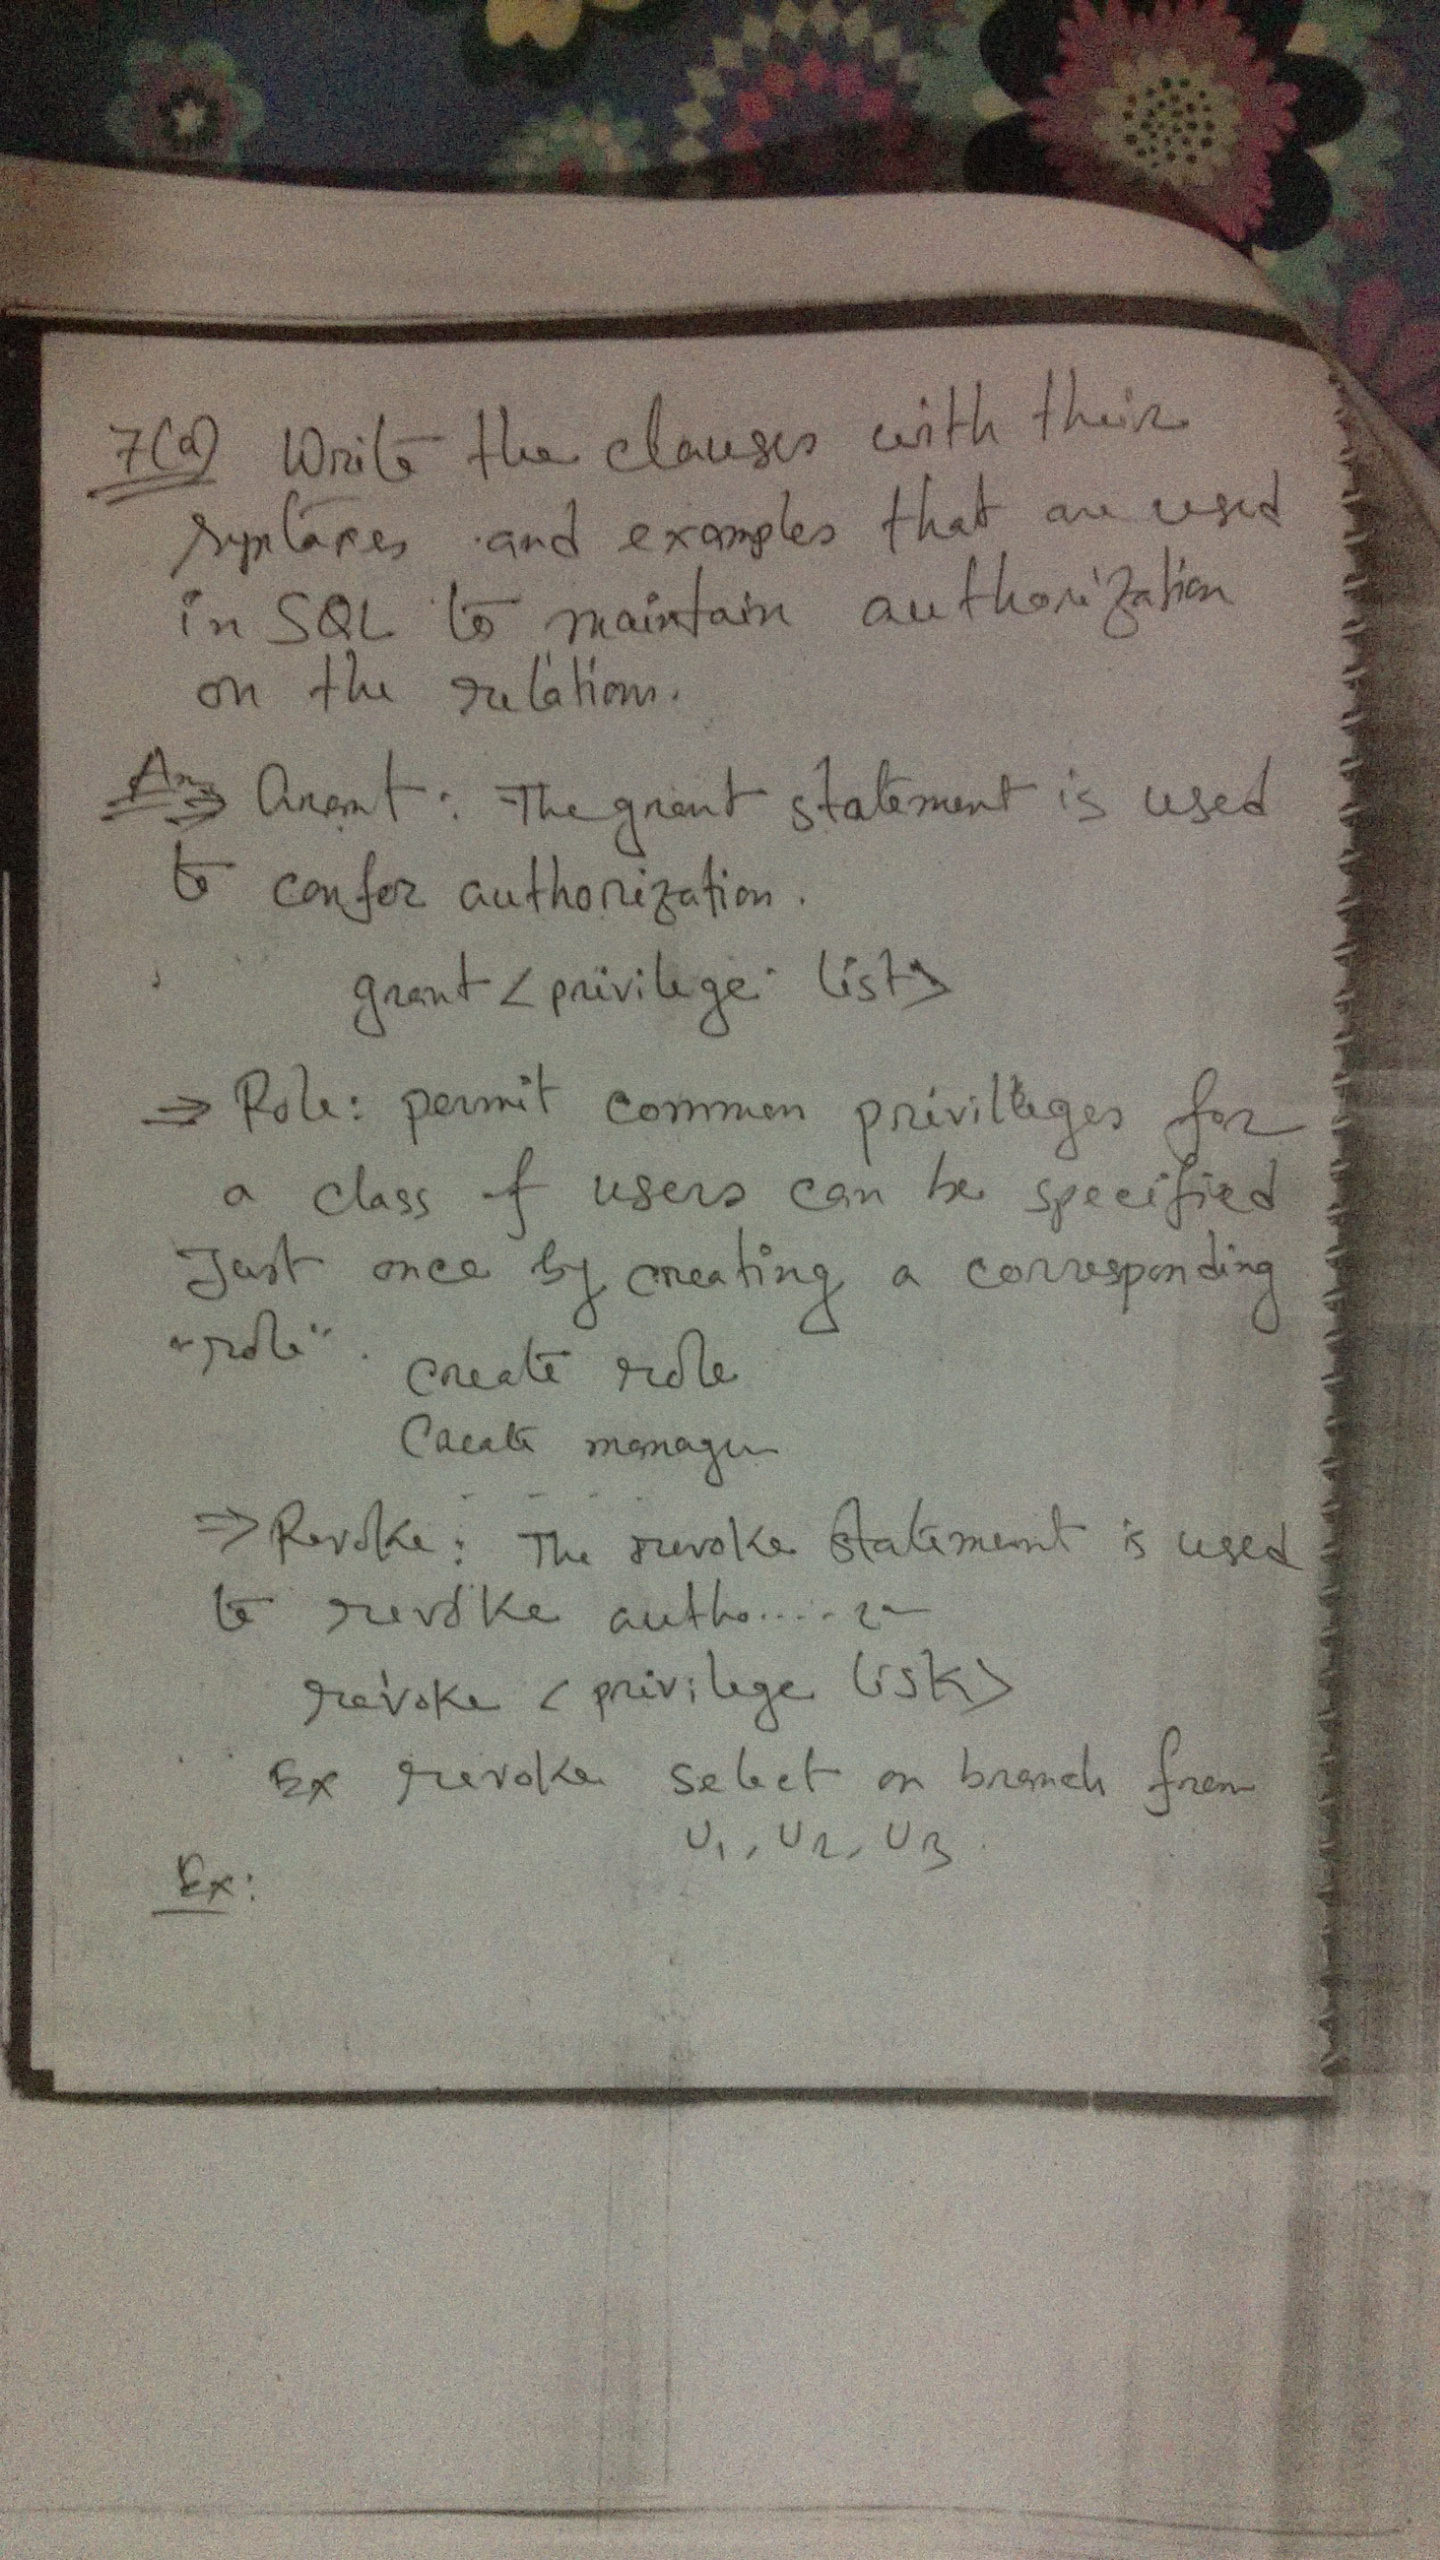 7(a) Write the clauses with their
syntaxes and examples that are used
in SQL to maintain authorization
on the relations.
Ans ⇒ Grant: The grant statement is used
to confer authorization.
grant <privilege list>
⇒ Role: permit common privileges for
a class of users can be specified
Just once by creating a corresponding
"role".
create role
Create manager
⇒ Revoke: The revoke statement is used
to revoke autho......
revoke <privilege list>
Ex revoke select on branch from
U1, U2, U3.
Ex: